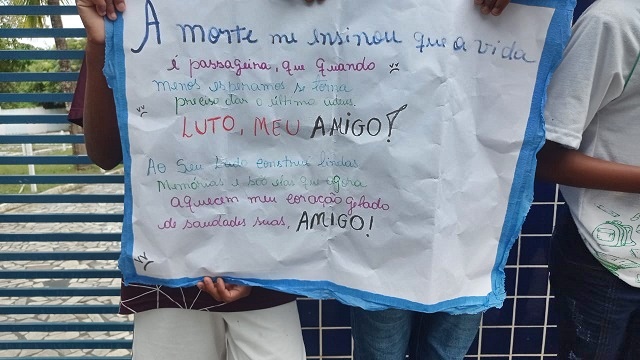 A morte me ensinou que a vida
é passageira, que quando
menos esperamos se torna
preciso dar o último adeus.
LUTO, MEU AMIGO!
Ao Seu Lado construi lindas
Memórias e são elas que agora
aquecem meu coração gelado
de saudades suas, AMIGO!